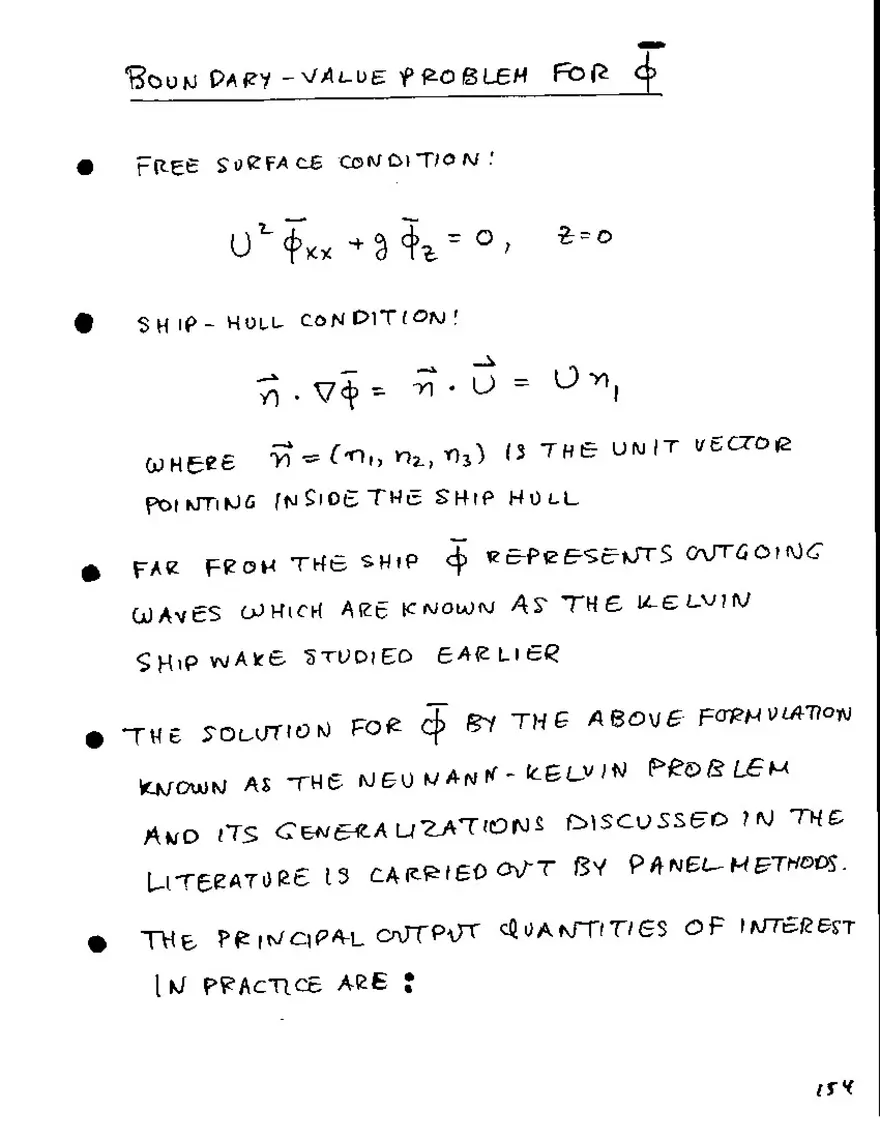 BOUNDARY-VALUE PROBLEM FOR Φ̄
• FREE SURFACE CONDITION:
U² φ̄xx + g φ̄z = 0, z=0
• SHIP-HULL CONDITION:
n⃗ · ∇φ̄ = n⃗ · U⃗ = U n₁
WHERE n⃗ = (n₁, n₂, n₃) IS THE UNIT VECTOR
POINTING INSIDE THE SHIP HULL
• FAR FROM THE SHIP φ̄ REPRESENTS OUTGOING
WAVES WHICH ARE KNOWN AS THE KELVIN
SHIP WAKE STUDIED EARLIER
• THE SOLUTION FOR φ̄ BY THE ABOVE FORMULATION
KNOWN AS THE NEUMANN-KELVIN PROBLEM
AND ITS GENERALIZATIONS DISCUSSED IN THE
LITERATURE IS CARRIED OUT BY PANEL-METHODS.
• THE PRINCIPAL OUTPUT QUANTITIES OF INTEREST
IN PRACTICE ARE:
154